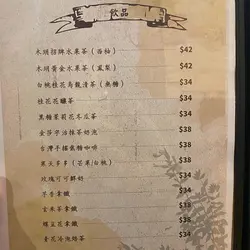 飲品
木胡招牌水果茶（西柚） $42
木胡黃金水果茶（鳳梨） $42
白桃桂花烏龍清茶（無糖） $34
桂花花釀茶 $34
黑糖茉莉花冬瓜茶 $34
金莎宇治抹茶奶泡 $38
台灣手搖焦糖咖啡 $38
果火多多（芒果/白桃） $38
玫瑰可可鮮奶 $34
芋香拿鐵 $34
玄米茶拿鐵 $38
蝶豆花拿鐵 $38
青花冷泡綠茶 $34